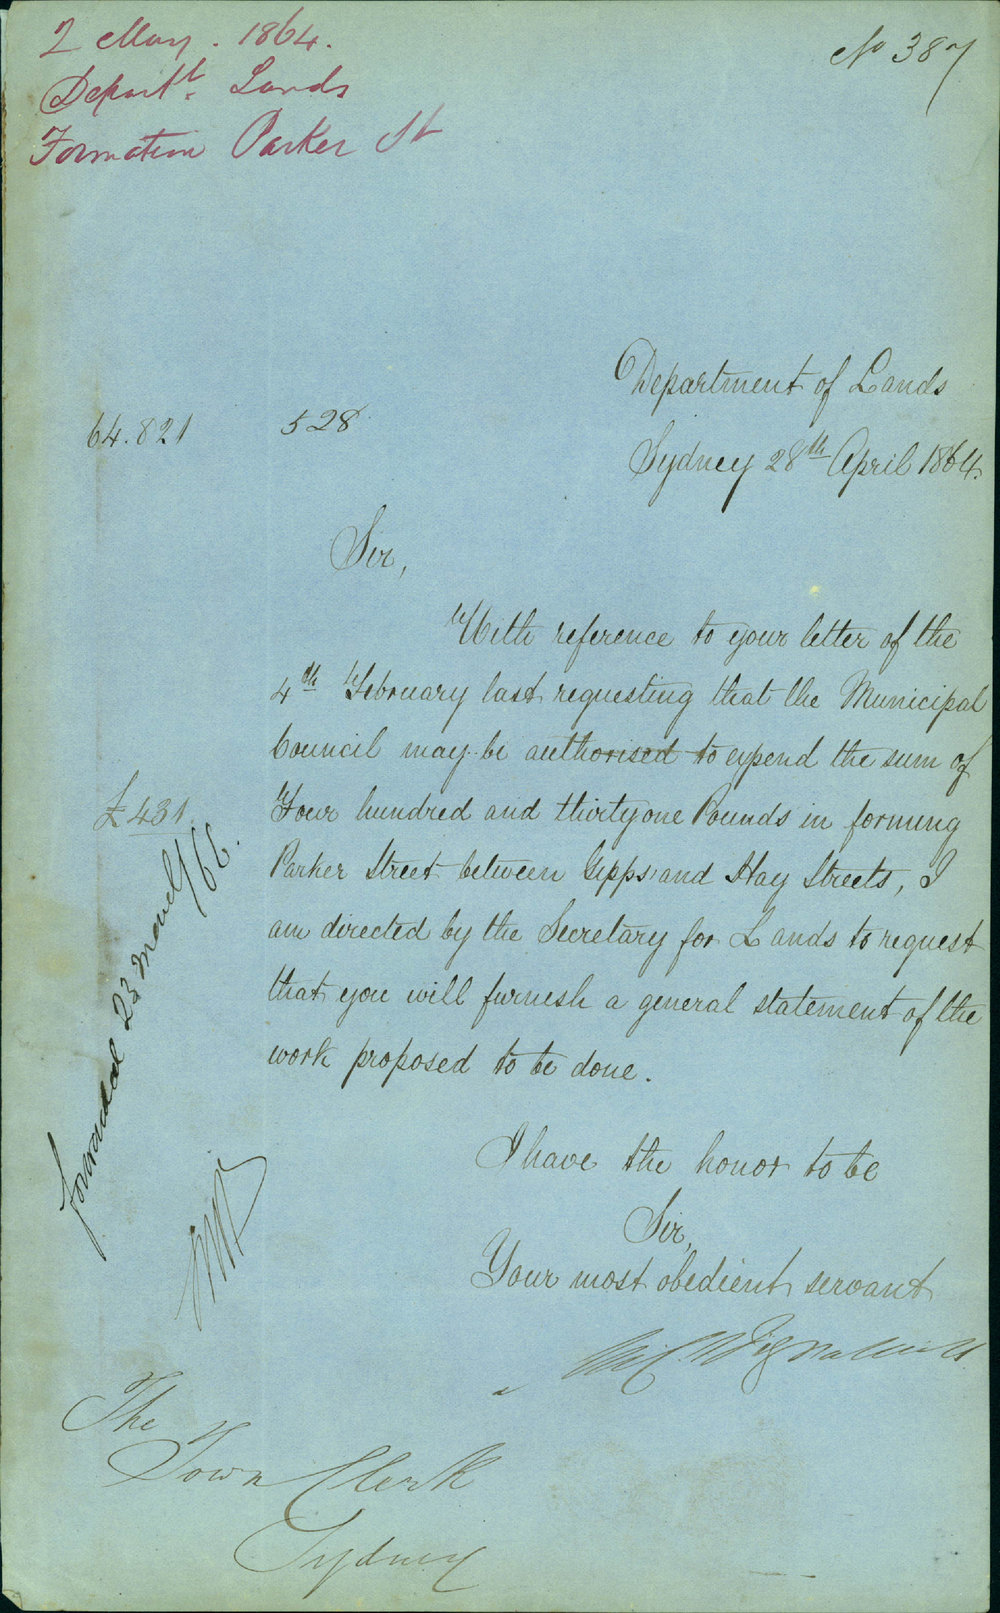 2 May. 1864.
Departt. Lands
Formation Parker St
No 387
Department of Lands
64.821 528
Sydney 28th April 1864.
Sir,
With reference to your letter of the
4th February last requesting that the Municipal
Council may be authorised to expend the sum of
£431
Four hundred and thirty one Pounds in forming
Parker Street between Gipps and Hay Streets, I
am directed by the Secretary for Lands to request
that you will furnish a general statement of the
work proposed to be done.
forwarded 23 March/66.
I have the honor to be
Sir,
Your most obedient servant
The
Town Clerk
Sydney